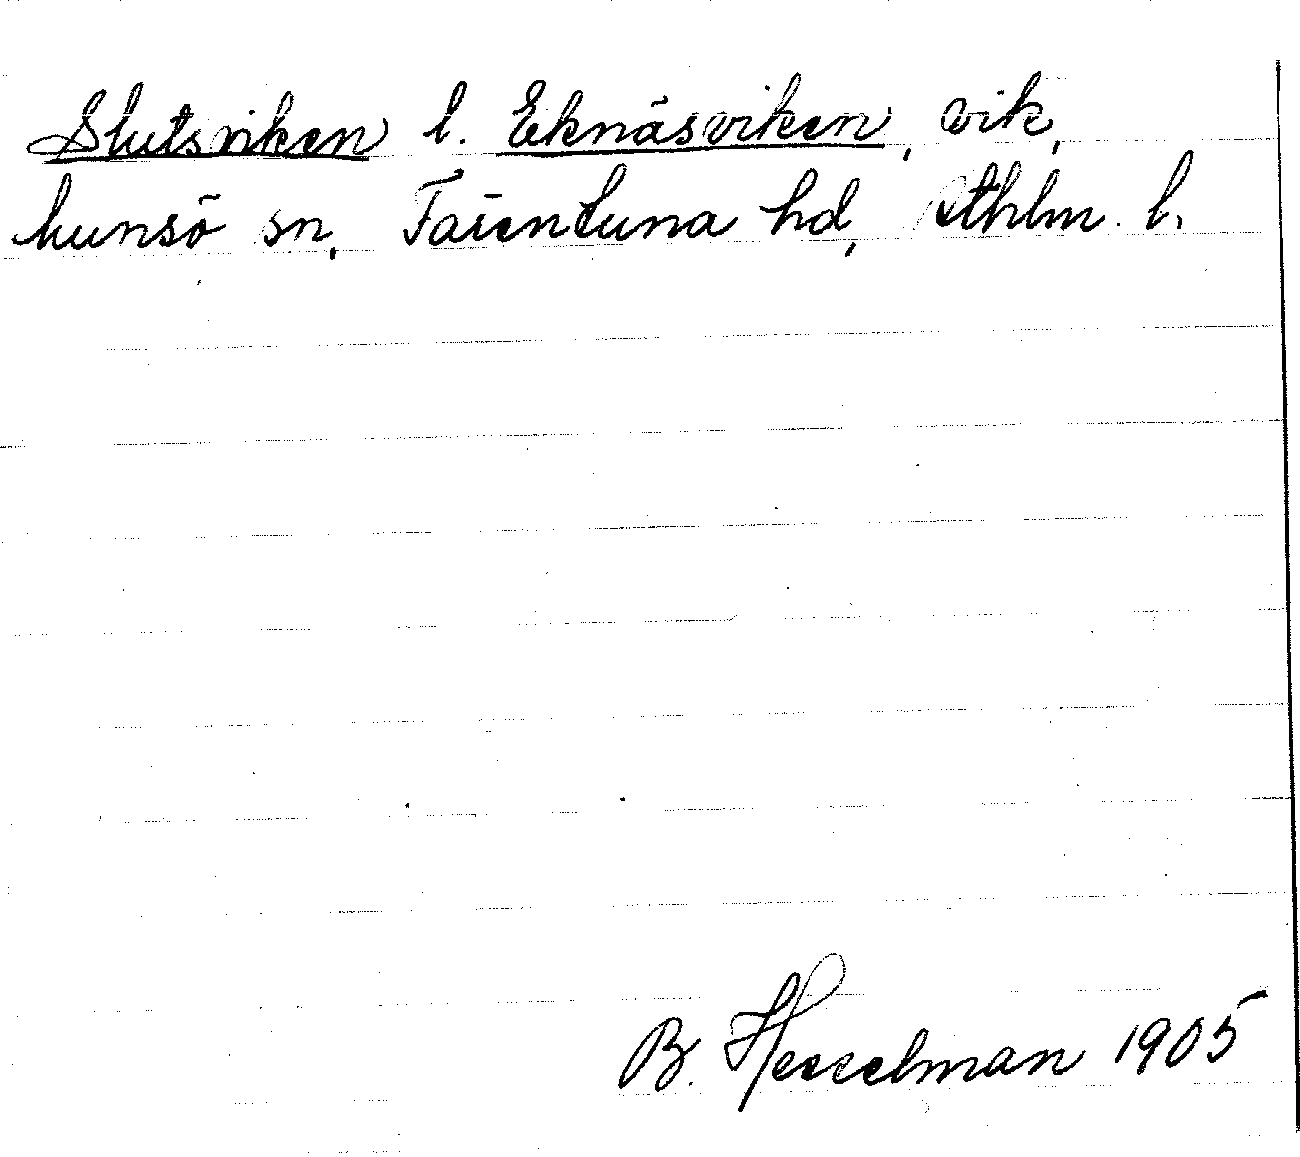 Slutsviken l. Eknäsviken, vik,
hunsö sn, Färentuna hd, Sthlm. l.
B. Hesselman 1905